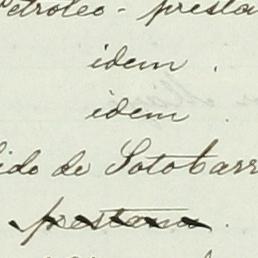 Petroleo - presta
idem .
idem .
ido de Sotobarr
prestama .